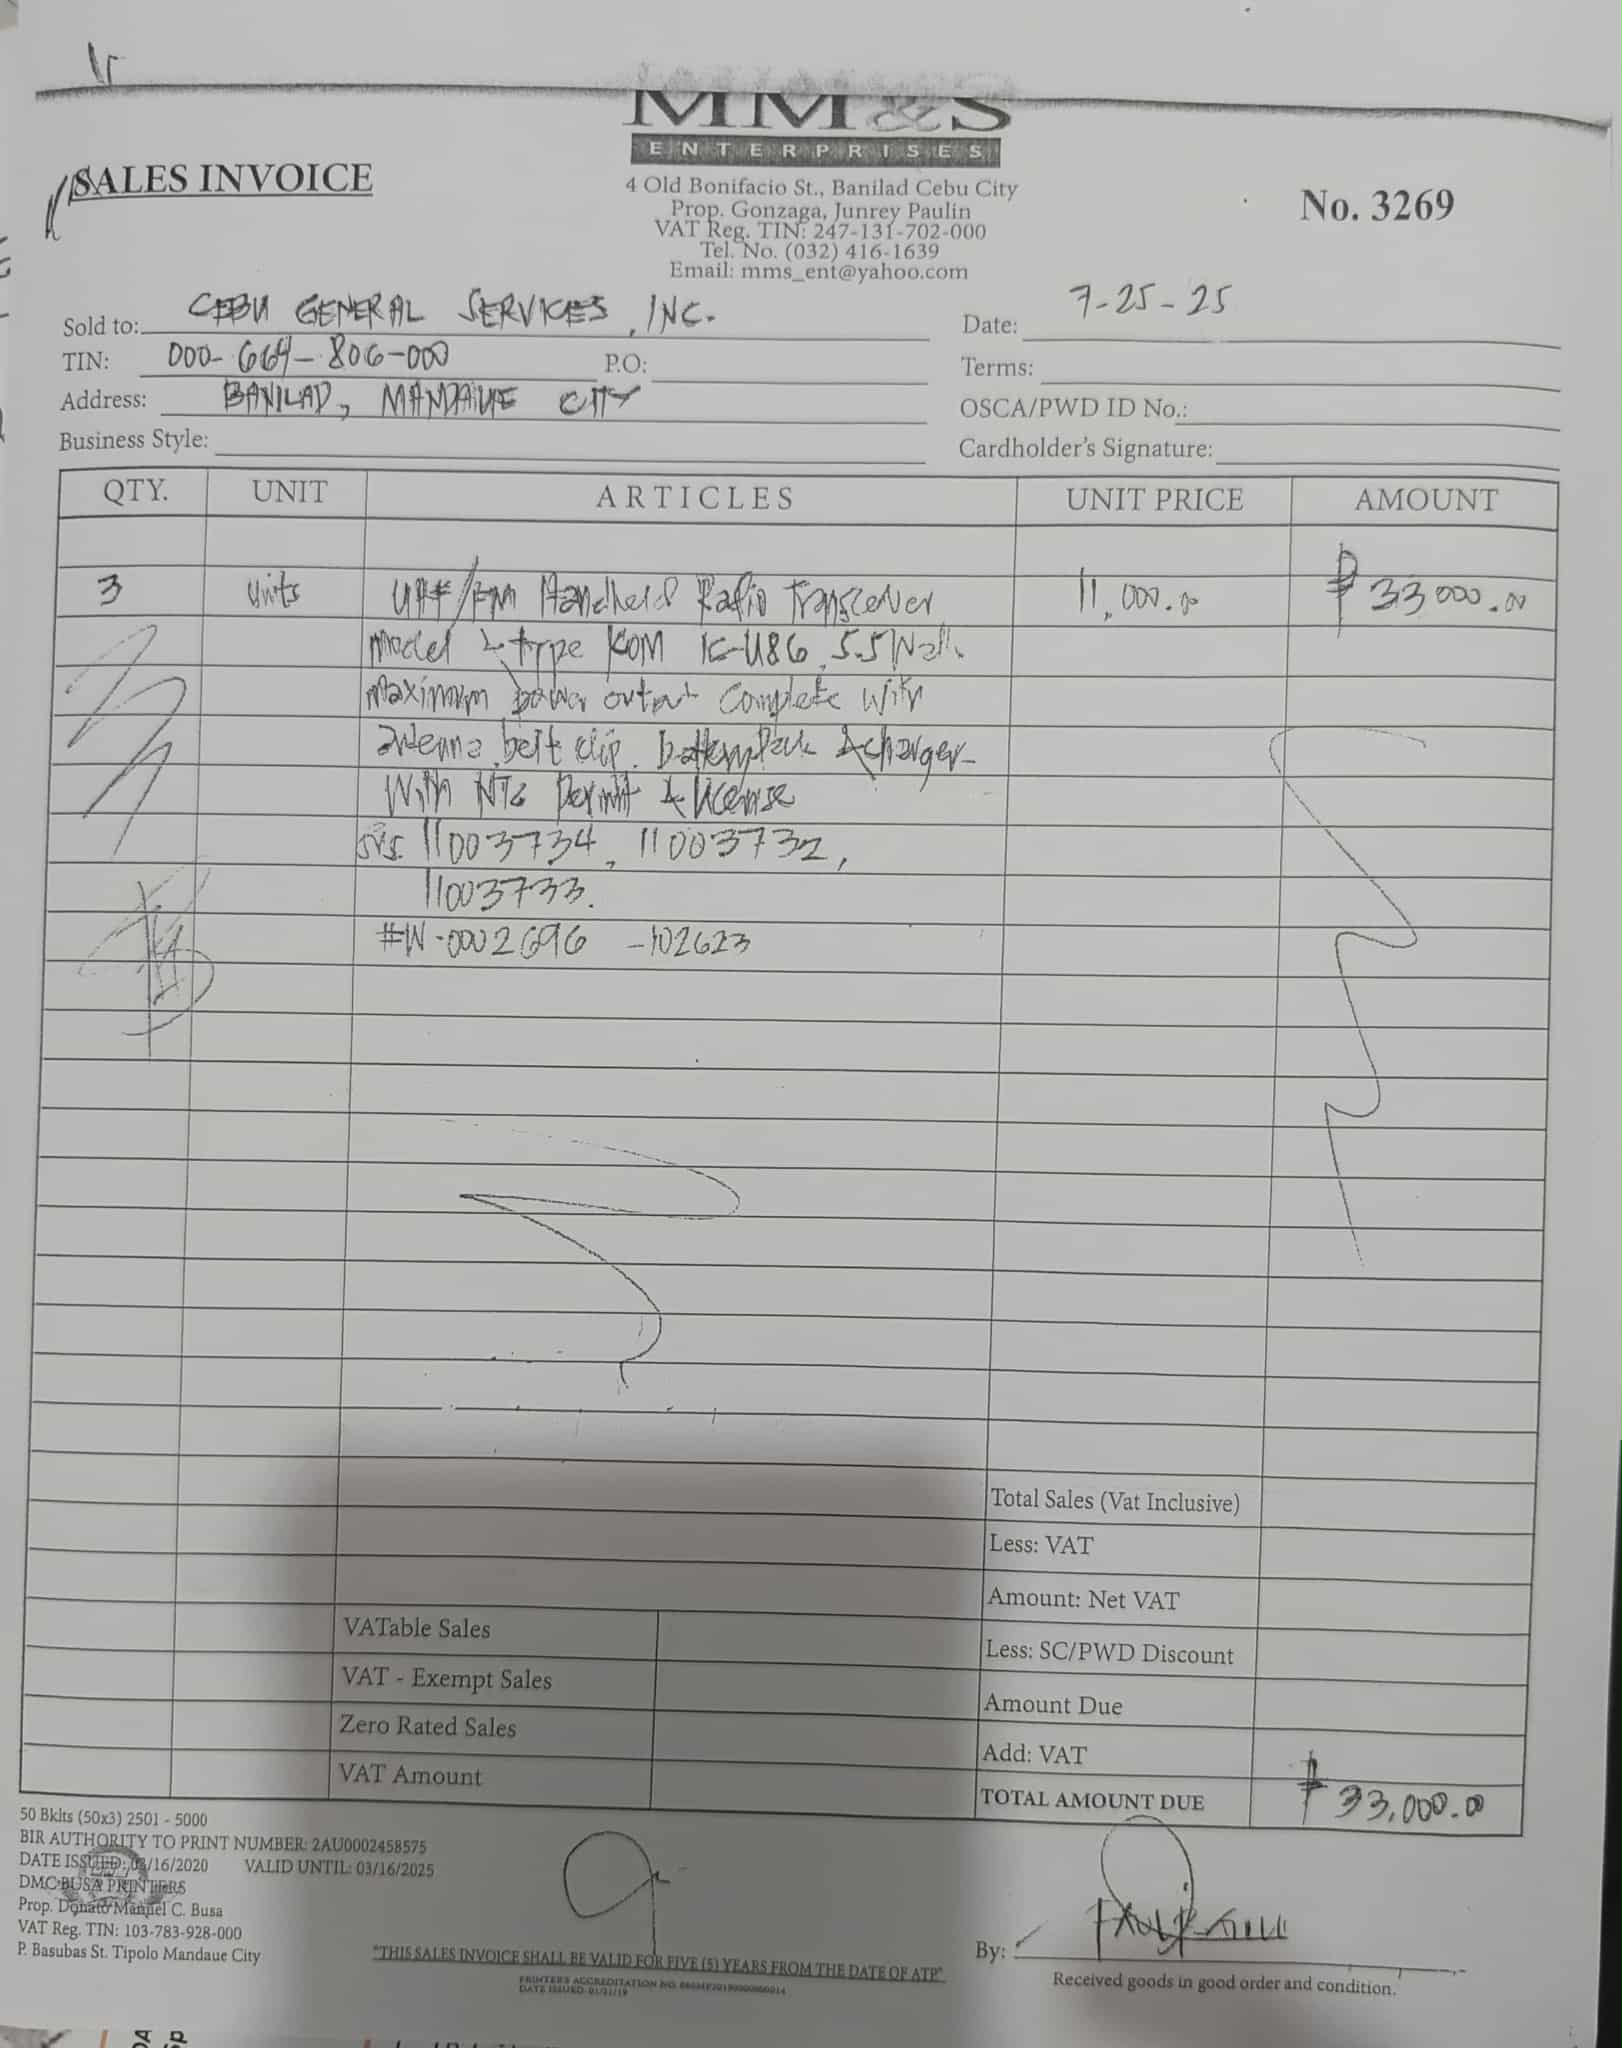 MM&S
ENTERPRISES
4 Old Bonifacio St., Banilad Cebu City
Prop. Gonzaga, Junrey Paulin
VAT Reg. TIN: 247-131-702-000
Tel. No. (032) 416-1639
Email: mms_ent@yahoo.com
SALES INVOICE
No. 3269
Sold to: CEBU GENERAL SERVICES, INC.
Date: 7-25-25
TIN: 000-664-806-000 P.O:
Terms:
Address: BANILAD, MANDAUE CITY
OSCA/PWD ID No.:
Business Style:
Cardholder's Signature:
QTY. UNIT ARTICLES UNIT PRICE AMOUNT
3 units UHF/FM Handheld Radio Transceiver 11,000.00 ₱33000.00
model & type ICOM IC-U86, 5.5 Watt
maximum power output complete with
antenna, belt clip, battery pack & charger
with NTC permit & license
SNS 11003734, 11003732,
11003733.
#W-0002696 -102623
Total Sales (Vat Inclusive)
Less: VAT
Amount: Net VAT
VATable Sales
Less: SC/PWD Discount
VAT - Exempt Sales
Amount Due
Zero Rated Sales
Add: VAT
VAT Amount
TOTAL AMOUNT DUE ₱33,000.00
50 Bklts (50x3) 2501 - 5000
BIR AUTHORITY TO PRINT NUMBER: 2AU0002458575
DATE ISSUED: 03/16/2020 VALID UNTIL: 03/16/2025
DMC BUSA PRINTERS
Prop. Donato Manuel C. Busa
VAT Reg. TIN: 103-783-928-000
P. Basubas St. Tipolo Mandaue City
"THIS SALES INVOICE SHALL BE VALID FOR FIVE (5) YEARS FROM THE DATE OF ATP"
PRINTER'S ACCREDITATION NO.
DATE ISSUED: 01/21/19
By:
Received goods in good order and condition.